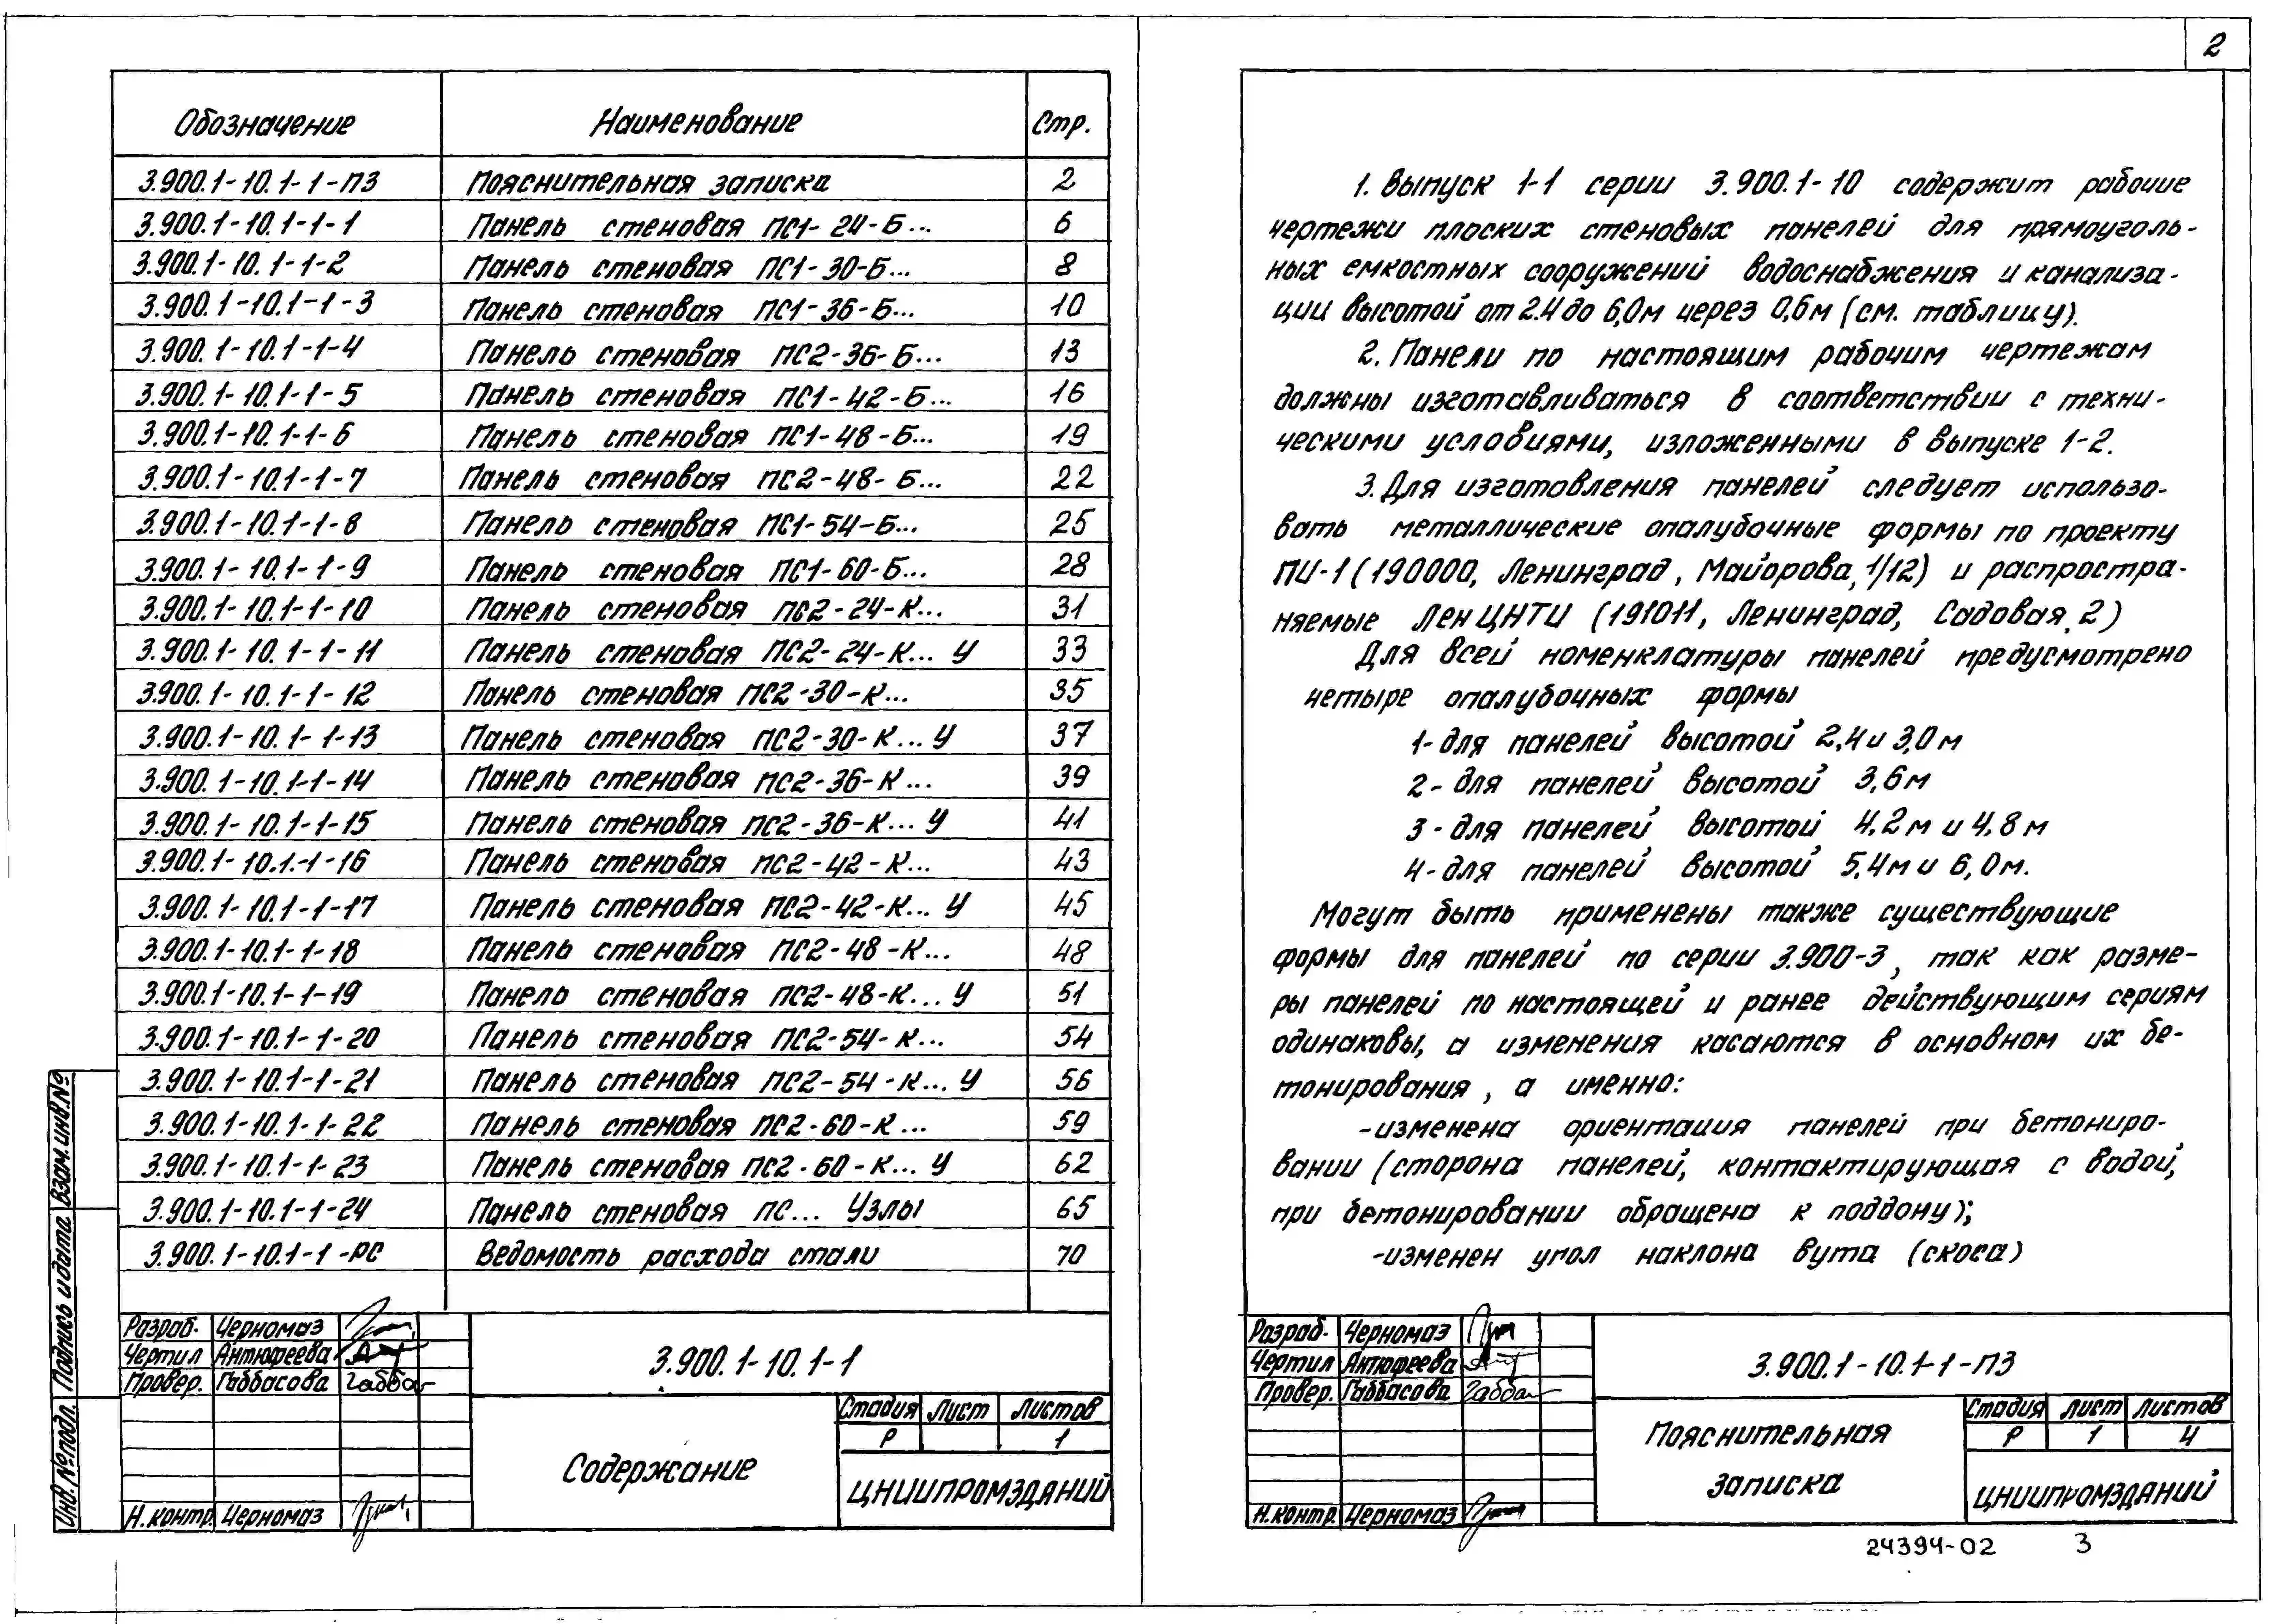 Обозначение Наименование Стр.
3.900.1-10.1-1-ПЗ Пояснительная записка 2
3.900.1-10.1-1-1 Панель стеновая ПС1-24-Б... 6
3.900.1-10.1-1-2 Панель стеновая ПС1-30-Б... 8
3.900.1-10.1-1-3 Панель стеновая ПС1-36-Б... 10
3.900.1-10.1-1-4 Панель стеновая ПС2-36-Б... 13
3.900.1-10.1-1-5 Панель стеновая ПС1-42-Б... 16
3.900.1-10.1-1-6 Панель стеновая ПС1-48-Б... 19
3.900.1-10.1-1-7 Панель стеновая ПС2-48-Б... 22
3.900.1-10.1-1-8 Панель стеновая ПС1-54-Б... 25
3.900.1-10.1-1-9 Панель стеновая ПС1-60-Б... 28
3.900.1-10.1-1-10 Панель стеновая ПС2-24-К... 31
3.900.1-10.1-1-11 Панель стеновая ПС2-24-К... У 33
3.900.1-10.1-1-12 Панель стеновая ПС2-30-К... 35
3.900.1-10.1-1-13 Панель стеновая ПС2-30-К... У 37
3.900.1-10.1-1-14 Панель стеновая ПС2-36-К... 39
3.900.1-10.1-1-15 Панель стеновая ПС2-36-К... У 41
3.900.1-10.1.-1-16 Панель стеновая ПС2-42-К... 43
3.900.1-10.1-1-17 Панель стеновая ПС2-42-К... У 45
3.900.1-10.1-1-18 Панель стеновая ПС2-48-К... 48
3.900.1-10.1-1-19 Панель стеновая ПС2-48-К... У 51
3.900.1-10.1-1-20 Панель стеновая ПС2-54-К... 54
3.900.1-10.1-1-21 Панель стеновая ПС2-54-К... У 56
3.900.1-10.1-1-22 Панель стеновая ПС2-60-К... 59
3.900.1-10.1-1-23 Панель стеновая ПС2-60-К... У 62
3.900.1-10.1-1-24 Панель стеновая ПС... Узлы 65
3.900.1-10.1-1-РС Ведомость расхода стали 70
Инв. № подл. Подпись и дата Взам. инв. №
Разраб. Черномаз
Чертил Антюфеева
Провер. Габбасова Габбас
Н.контр. Черномаз
3.900.1-10.1-1
Содержание
Стадия Лист Листов
Р 1
ЦНИИПРОМЗДАНИЙ
2
1. Выпуск 1-1 серии 3.900.1-10 содержит рабочие
чертежи плоских стеновых панелей для прямоуголь-
ных емкостных сооружений водоснабжения и канализа-
ции высотой от 2.4 до 6,0м через 0,6м (см. таблицу).
2. Панели по настоящим рабочим чертежам
должны изготавливаться в соответствии с техни-
ческими условиями, изложенными в выпуске 1-2.
3. Для изготовления панелей следует использо-
вать металлические опалубочные формы по проекту
ПИ-1 (190000, Ленинград, Майорова, 1/12) и распростра-
няемые ЛенЦНТИ (191011, Ленинград, Садовая, 2)
Для всей номенклатуры панелей предусмотрено
четыре опалубочных формы
1- для панелей высотой 2,4 и 3,0 м
2- для панелей высотой 3,6 м
3- для панелей высотой 4,2 м и 4,8 м
4- для панелей высотой 5,4м и 6,0м.
Могут быть применены также существующие
формы для панелей по серии 3.900-3, так как разме-
ры панелей по настоящей и ранее действующим сериям
одинаковы, а изменения касаются в основном их бе-
тонирования, а именно:
-изменена ориентация панелей при бетониро-
вании (сторона панелей, контактирующая с водой,
при бетонировании обращена к поддону);
-изменен угол наклона вута (скоса)
Разраб. Черномаз
Чертил Антюфеева
Провер. Габбасова Габбас
Н.контр. Черномаз
3.900.1-10.1-1-ПЗ
Пояснительная
записка
Стадия Лист Листов
Р 1 4
ЦНИИПРОМЗДАНИЙ
24394-02 3